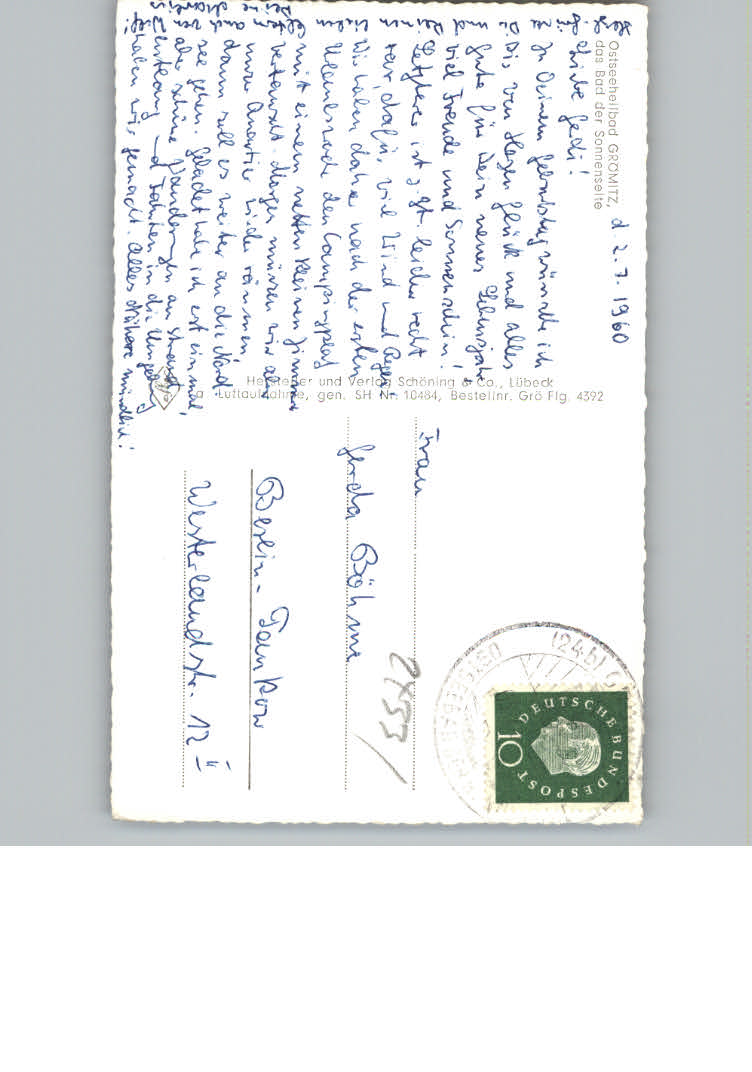 Ostseeheilbad GRÖMITZ,
das Bad der Sonnenseite
d. 2.7.1960
Liebe Gerdi!
Zu Deinem Geburtstag wünsche ich
Dir von Herzen Glück und alles
Gute für Dein neues Lebensjahr
viel Freude und Sonnenschein!
Letzterer ist z. Zt. leider recht
rar, dafür viel Wind und Regen.
Wir haben daher nach der ersten
Urlaubswoche den Campingplatz
mit einem netten kleinen Zimmer
vertauscht. Morgen müssen wir aber
unser Quartier wieder räumen,
dann soll es weiter an die Nord-
see gehen. Gebadet habe ich erst einmal,
aber schöne Wanderungen am Strand
entlang und Fahrten in die Umgebung
haben wir gemacht. Alles Nähere mündlich!
Hersteller und Verlag Schöning & Co., Lübeck
Luftaufnahme, gen. SH Nr. 10484, Bestellnr. Grö Flg. 4392
Frau
Gerda Böhme
Berlin-Pankow
Westerlandstr. 12 II
2453
(24b)
OSTSEEHEILBAD
DEUTSCHE BUNDESPOST
10